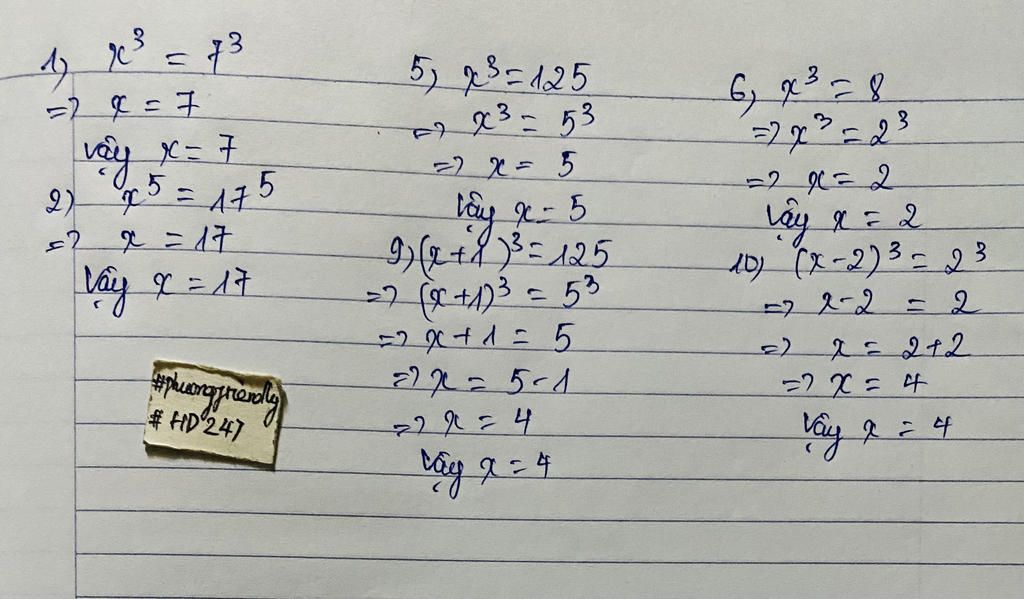 1) x³ = 7³
=> x = 7
Vậy x = 7
2) x⁵ = 17⁵
=> x = 17
Vậy x = 17
#phuongfriendly
# HD247
5, x³ = 125
=> x³ = 5³
=> x = 5
Vậy x = 5
9) (x+1)³ = 125
=> (x+1)³ = 5³
=> x + 1 = 5
=> x = 5 - 1
=> x = 4
Vậy x = 4
6, x³ = 8
=> x³ = 2³
=> x = 2
Vậy x = 2
10) (x-2)³ = 2³
=> x-2 = 2
=> x = 2+2
=> x = 4
Vậy x = 4